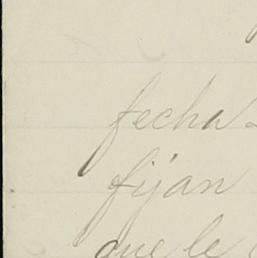 fecha
fijan
que le